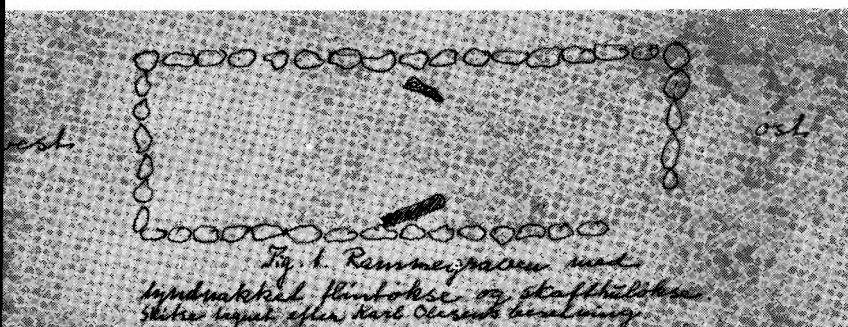 vest
øst
Fig. 1. Rammegraven med
tyndnakket flintökse og skafthulökse.
Skitse tegnet efter Karl Olesens beretning